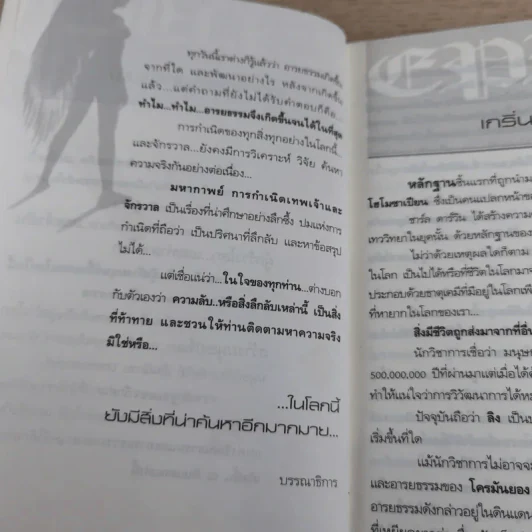 ทุกวันนี้เราต่างก็รู้แล้วว่า อารยธรรมเกิดขึ้น
จากที่ใด และพัฒนาอย่างไร หลังจากเกิดขึ้น
แล้ว...แต่คำถามที่ยังไม่ได้รับคำตอบก็คือ...
ทำไม...ทำไม...อารยธรรมจึงเกิดขึ้นจนได้ในที่สุด
การกำเนิดของทุกสิ่งทุกอย่างในโลกนี้...
และจักรวาล...ยังคงมีการวิเคราะห์ วิจัย ค้นหา
ความจริงกันอย่างต่อเนื่อง...
มหากาพย์ การกำเนิดเทพเจ้าและ
จักรวาล เป็นเรื่องที่น่าศึกษาอย่างลึกซึ้ง ปมแห่งการ
กำเนิดที่ถือว่า เป็นปริศนาที่ลึกลับ และหาข้อสรุป
ไม่ได้...
แต่เชื่อแน่ว่า...ในใจของทุกท่าน...ต่างบอก
กับตัวเองว่า ความลับ..หรือสิ่งลึกลับเหล่านี้ เป็นสิ่ง
ที่ท้าทาย และชวนให้ท่านติดตามหาความจริง
มิใช่หรือ...
...ในโลกนี้
ยังมีสิ่งที่น่าค้นหาอีกมากมาย...
บรรณาธิการ
เกริ่น
หลักฐานชิ้นแรกที่ถูกนำม
โฮโมซาเปียน ซึ่งเป็นคนแปลกหน้าข
ชาร์ล ดาร์วิน ได้สร้างความ
เทววิทยาในยุคนั้น ด้วยหลักฐานของ
ไม่ว่าด้วยเหตุผลใดก็ตาม
ในโลก เป็นไปได้หรือที่ชีวิตในโลกมา
ประกอบด้วยธาตุเคมีที่มีอยู่ในโลกเพี
ที่หายากในโลกของเรา...
สิ่งมีชีวิตถูกส่งมาจากที่อื่
นักวิชาการเชื่อว่า มนุษ
500,000,000 ปีที่ผ่านมาแต่เมื่อได้ค้
ทำให้แน่ใจว่าการวิวัฒนาการได้ห
ปัจจุบันถือว่า ลิง เป็น
เริ่มขึ้นที่ใด
แม้นักวิชาการไม่อาจจ
และอารยธรรมของ โครมันยอง
อารยธรรมดังกล่าวอยู่ในดินแดน